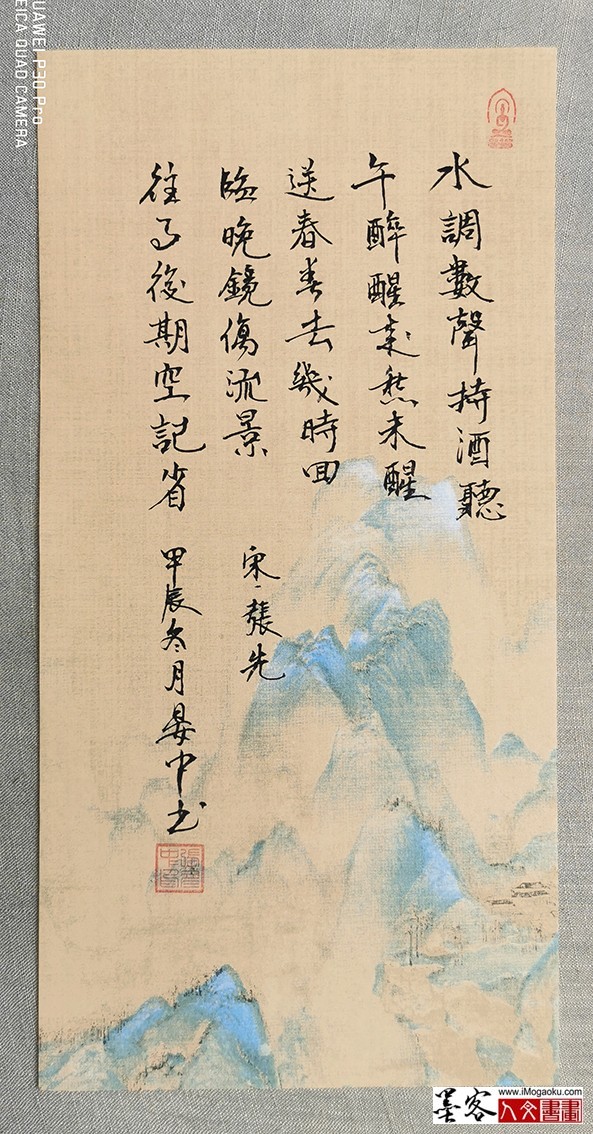 水調數聲持酒聽
午醉醒來愁未醒
送春春去幾時回
臨晚鏡傷流景
往事後期空記省
宋·張先
甲辰冬月晏中书
HUAWEI P30 Pro
LEICA QUAD CAMERA
www.iMogaoku.com
墨客 人文書畫